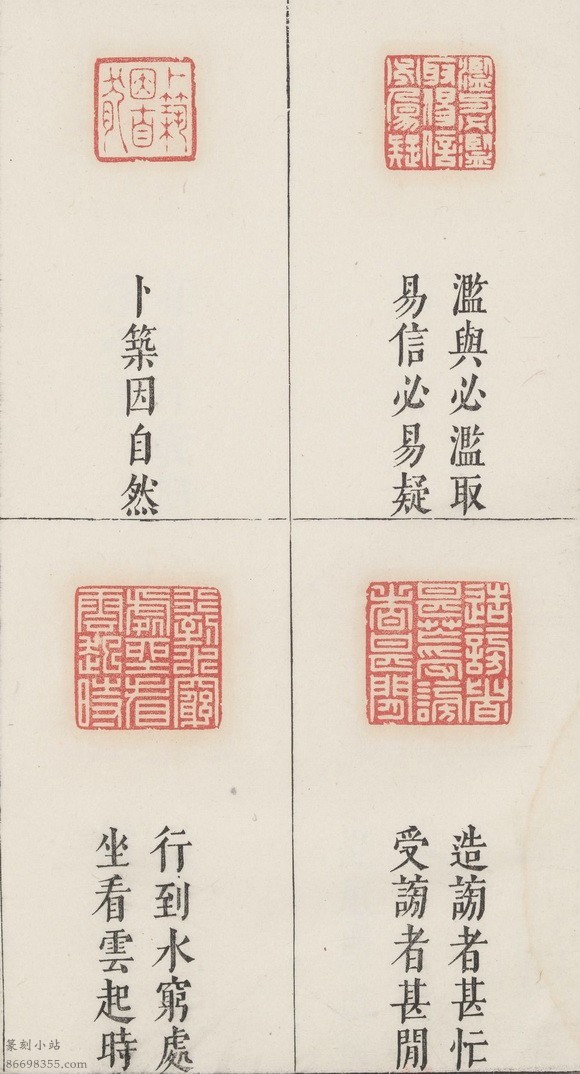 濫與必濫取
易信必易疑
卜築因自然
造謗者甚忙
受謗者甚閒
行到水窮處
坐看雲起時
篆刻小站
86698355.com